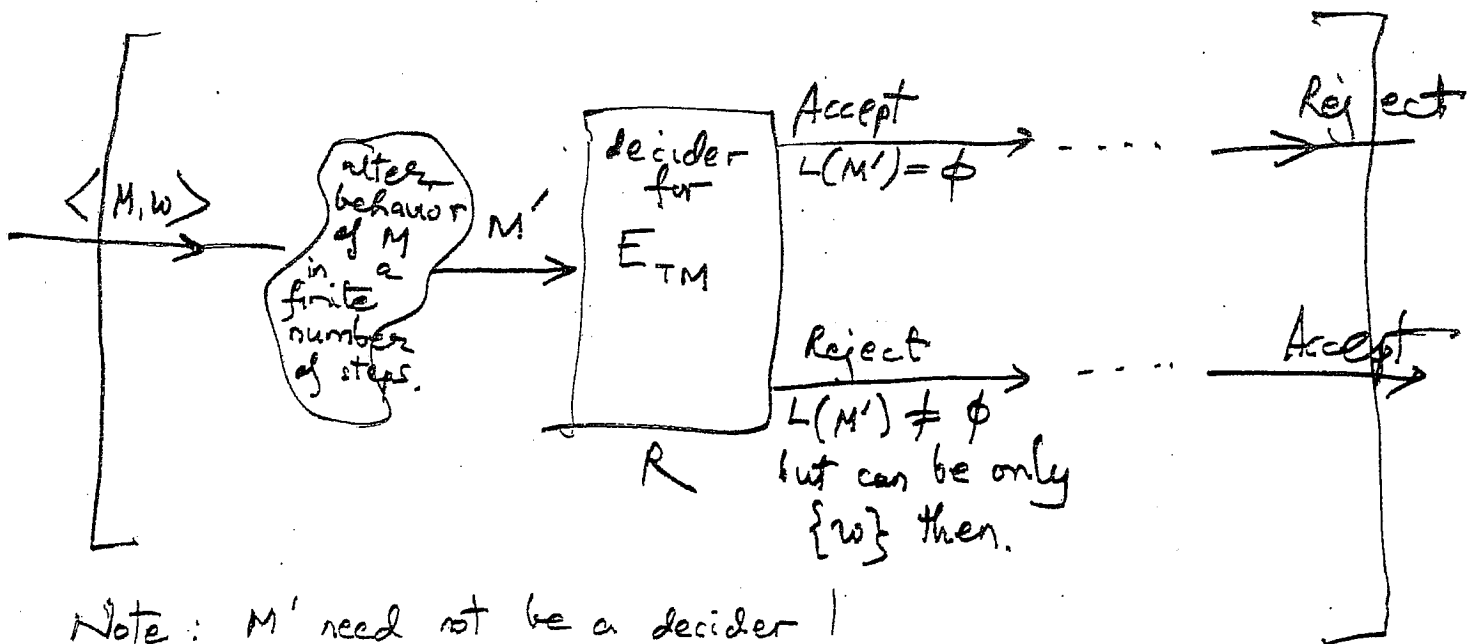 < M, w >
alter
behavior
of M
in a
finite
number
of steps.
M'
decider
for
E_TM
R
Accept
L(M') = φ
....
Reject
Reject
L(M') ≠ φ
but can be only
{w} then.
....
Accept
Note: M' need not be a decider !